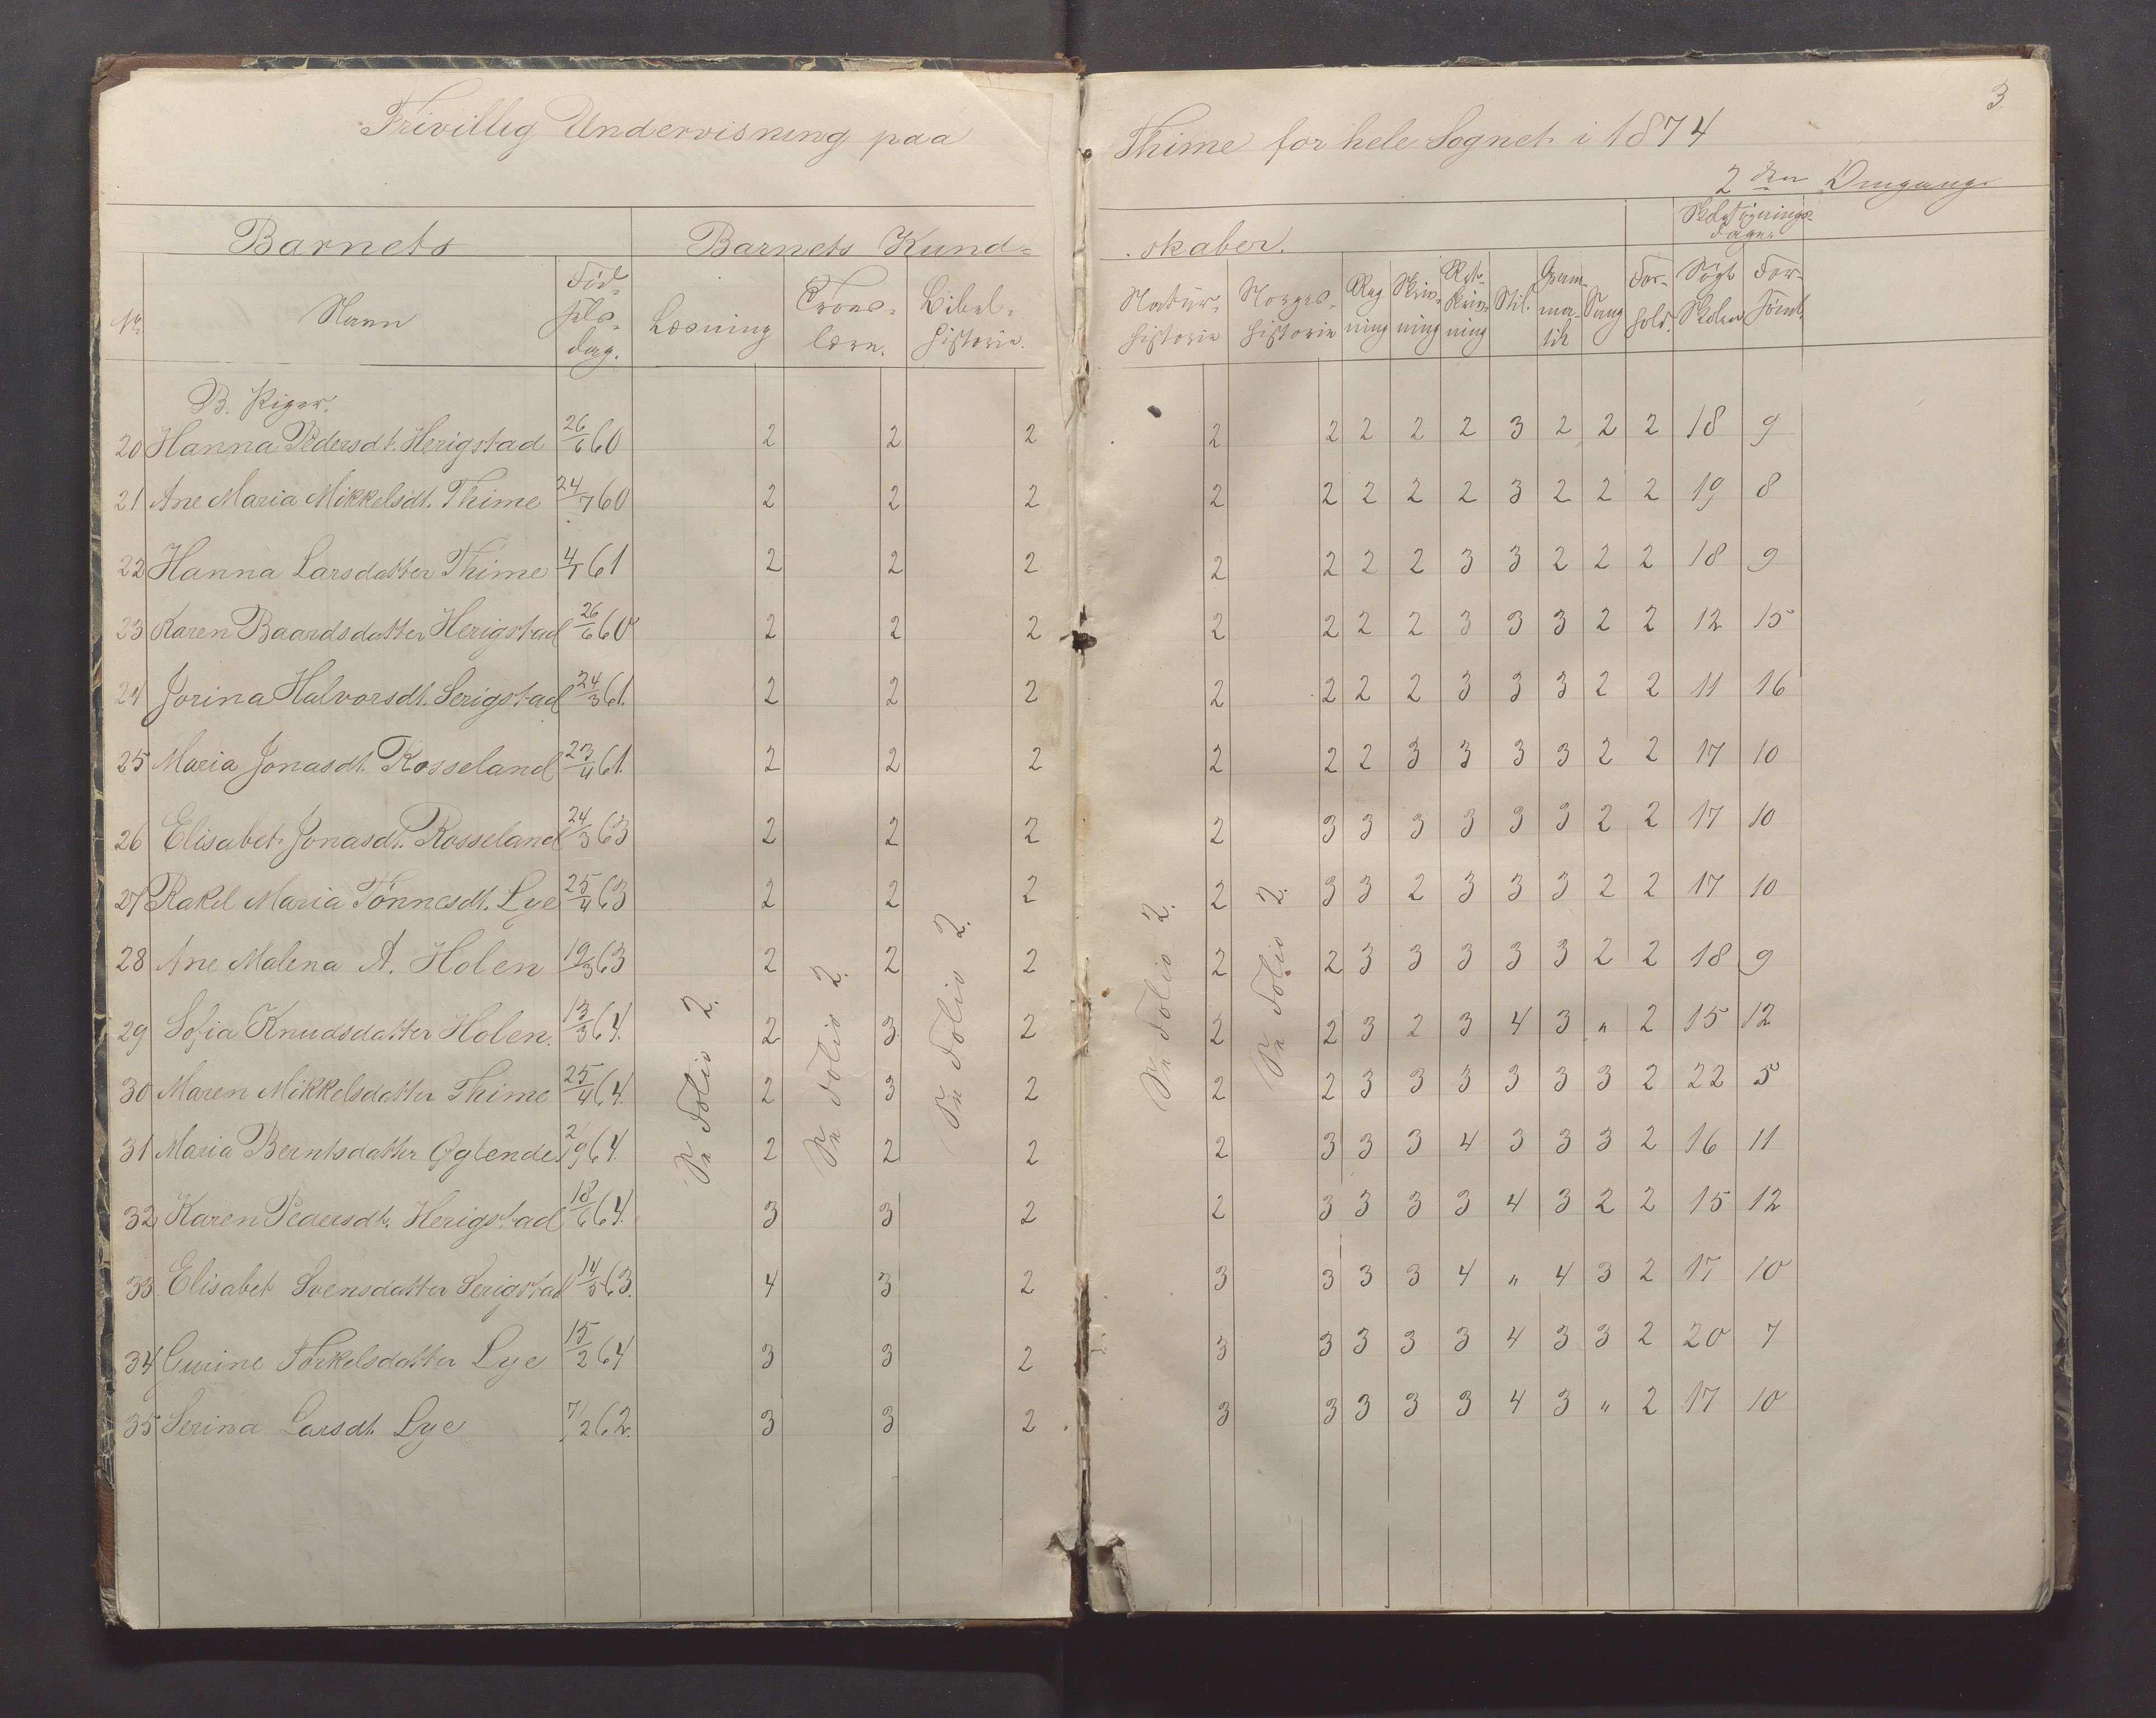 Frivillig Undervisning paa Thime for hele Sognet i 1874
3
2den Omgang.
Barnets | Barnets Kundskaber. | Skolesøgningsdage.
Nr. | Navn | Fødselsdag. | Læsning | Troeslære. | Bibelhistorie. | Naturhistorie | Norgeshistorie | Regning | Skrivning | Retskrivning | Stil. | Grammatik | Sang | Forhold. | Søgt Skolen | Forsømt.
B. Piger.
20 Hanna Pedersdt. Herigstad 26/6 60 2 2 2 2 2 2 2 2 3 2 2 2 18 9
21 Ane Maria Mikkelsdt. Thime 24/7 60 2 2 2 2 2 2 2 2 3 2 2 2 19 8
22 Hanna Larsdatter Thime 4/1 61 2 2 2 2 2 2 2 3 3 2 2 2 18 9
23 Karen Baardsdatter Herigstad 26/6 60 2 2 2 2 2 2 2 3 3 3 2 2 12 15
24 Jorina Halvorsdt. Serigstad 24/3 61. 2 2 2 2 2 2 2 3 3 3 2 2 11 16
25 Maria Jonasdt. Rosseland 23/4 61. 2 2 2 2 2 2 3 3 3 3 2 2 17 10
26 Elisabet Jonasdt. Rosseland 24/3 63 2 2 2 2 3 3 3 3 3 3 2 2 17 10
27 Rakel Maria Tønnesdt. Lye 25/4 63 2 2 2 2 3 3 2 3 3 3 2 2 17 10
28 Ane Malena A. Holen 19/3 63 2 2 2 2 2 3 3 3 3 3 2 2 18 9
29 Sofia Knudsdatter Holen. 13/3 64. 2 3 2 2 2 3 2 3 4 3 " 2 15 12
30 Maren Mikkelsdatter Thime 25/4 64. 2 3 2 2 2 3 3 3 3 3 3 2 22 5
31 Maria Berntsdatter Øglende 2/9 64. 2 2 2 2 3 3 3 4 3 3 3 2 16 11
32 Karen Pedersdt. Herigstad 18/6 64. 3 3 2 2 3 3 3 3 4 3 2 2 15 12
33. Elisabet Svensdatter Serigstad 14/5 63. 4 3 2 3 3 3 3 4 " 4 3 2 17 10
34 Gurine Torkelsdatter Lye 15/2 64 3 3 2 3 3 3 3 3 4 3 3 2 20 7
35 Serina Larsdt. Lye 7/2 62. 3 3 2 3 3 3 3 3 4 3 " 2 17 10
Se Folio 2.
Se Folio 2.
Se Folio 2.
Se Folio 2.
Se Folio 2.